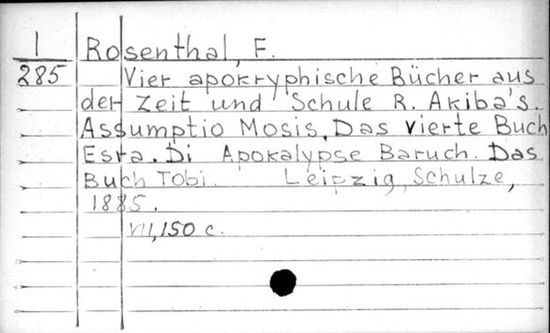 1 Rosenthal, F.
285 Vier apokryphische Bücher aus
der Zeit und Schule R. Akiba's.
Assumptio Mosis, Das vierte Buch
Esra. Di Apokalypse Baruch. Das
Buch Tobi. Leipzig, Schulze,
1885.
VII,150 c.